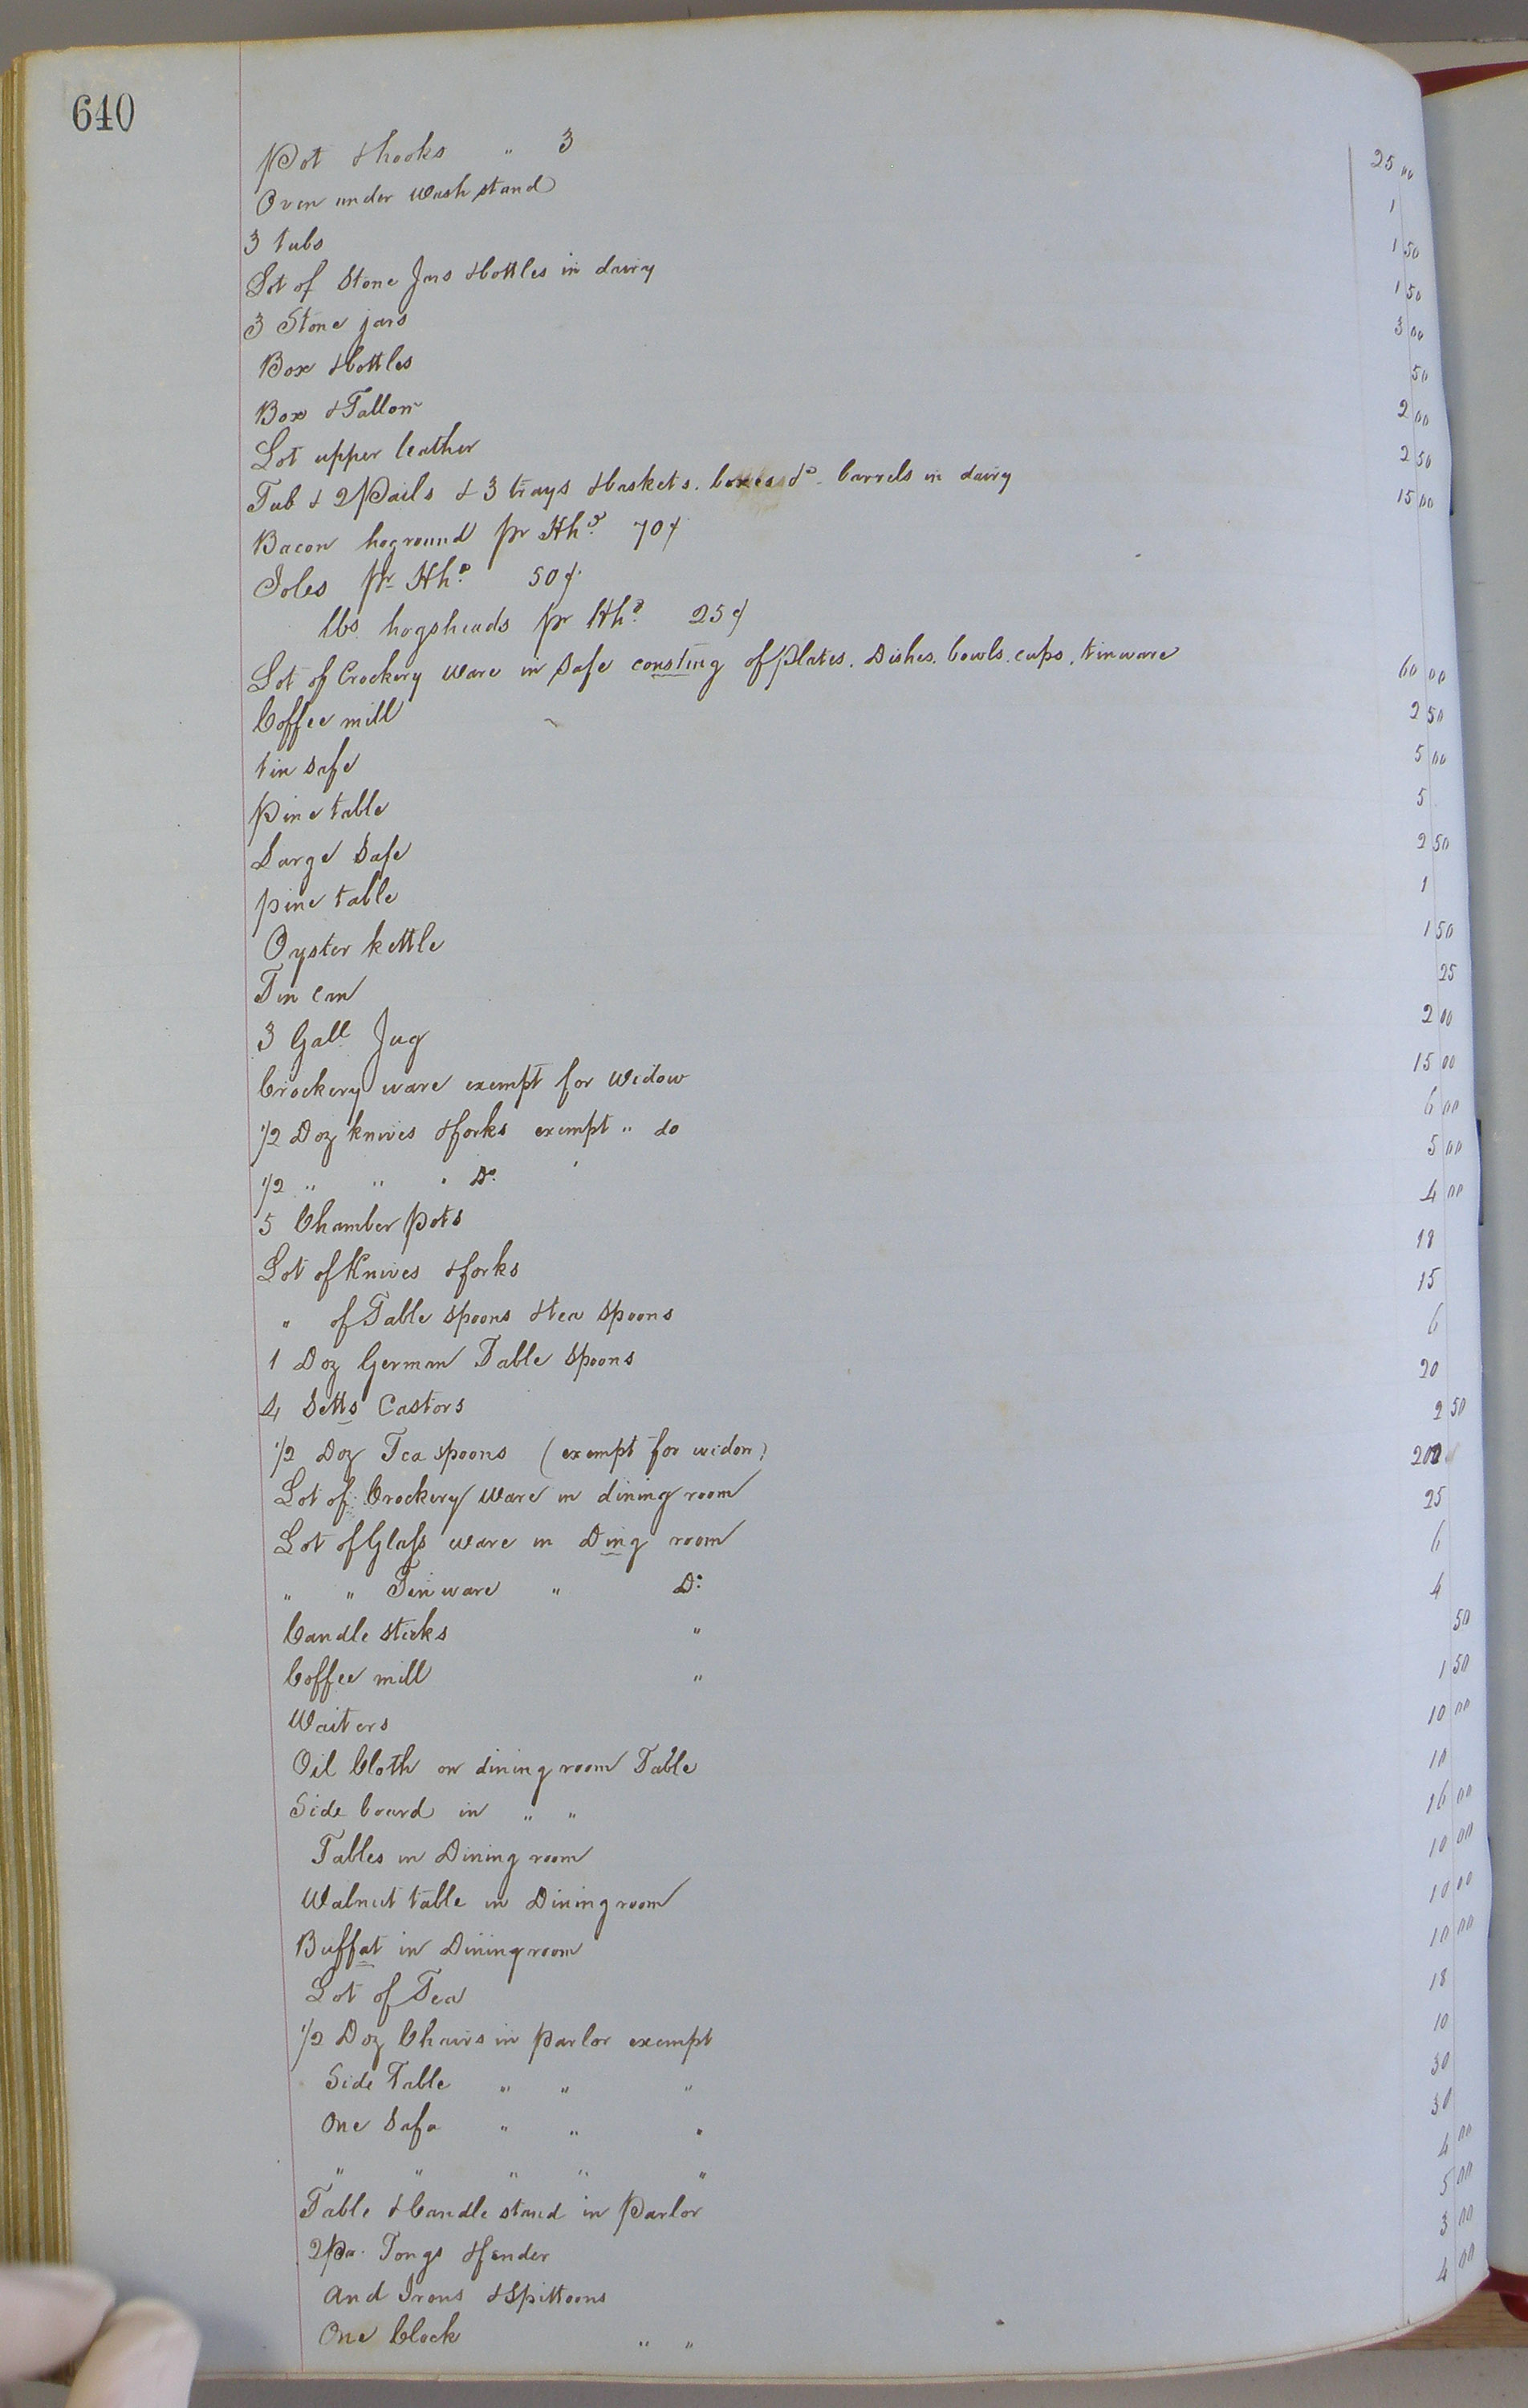 640
Pot & hooks " 3 25 00
Oven under wash stand 1
3 tubs 1 50
Lot of Stone Jars & bottles in dairy 1 50
3 Stone jars 3 00
Box & bottles 50
Box & Tallow 2 00
Lot upper leather 2 50
Tub & 2 Pails & 3 trays & baskets. boxes &c. barrels in dairy 15 00
Bacon hoground pr Hhd. 70¢
Joles pr Hhd. 50¢
lbs hogsheads pr Hhd. 25¢
Lot of Crockery ware in Safe consting of Plates. Dishes. bowls. cups. tinware 60 00
Coffee mill 2 50
tin safe 5 00
Pine table 5
Large Safe 2 50
pine table 1
Oyster kettle 1 50
Tin can 25
3 Gall Jug 2 00
Crockery ware exempt for Widow 15 00
1/2 Doz knives & forks exempt " do 6 00
1/2 " " " Do. 5 00
5 Chamber pots 4 00
Lot of Knives & forks 18
" of Table spoons & tea spoons 15
1 Doz German Table Spoons 6
4 Setts Castors 20
1/2 Doz Tea spoons (exempt for widow) 2 50
Lot of Crockery ware in dining room 20
Lot of Glass ware in Ding room 25
" " Tin ware " Do. 6
Candle sticks " 4
Coffee mill " 50
Waiters 1 50
Oil Cloth on dining room Table 10 00
Side board in " " 10
Tables in Dining room 16 00
Walnut table in Dining room 10 00
Buffat in Dining room 10 00
Lot of Tea 10 00
1/2 Doz Chairs in parlor exempt 18
Side Table " " " 10
One Safa " " " 30
" " " " " 30
Table & Candle stand in Parlor 4 00
2 Pr. Tongs & fender 5 00
And Irons & Spittoons 3 00
One Clock " " 4 00